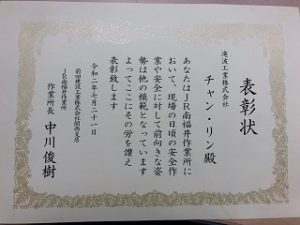 表彰状
滝波工業株式会社
チャン・リン殿
あなたはJR南福井作業所に
おいて、現場の日頃の安全作
業や安全に対して前向きな姿
勢は他の模範となっています
よってここにその労を讃え
表彰致します
令和二年七月二十一日
前田建設工業株式会社関西支店
JR南福井作業所
作業所長 中川俊樹